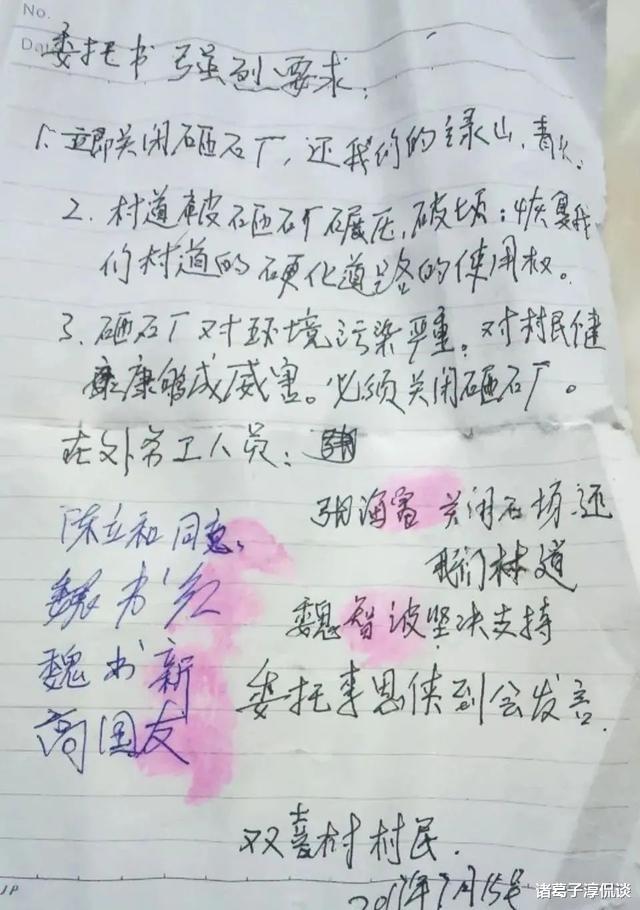 No.
Da
委托书 强烈要求：
1. 立即关闭硒石厂，还我们的绿山、青水。
2. 村道被硒石厂碾压，破坏：恢复我
们村道的硬化道路的使用权。
3. 硒石厂对环境污染严重。对村民健
康够成威害。必须关闭硒石厂。
在外务工人员：
张海 关闭石场还
我们林道
陈立和 同意、
魏书红
魏智波 坚决支持
魏书新
委托李恩侠到会发言.
高国友
双喜村村民.
7月15号
JP
诸葛子淳侃谈